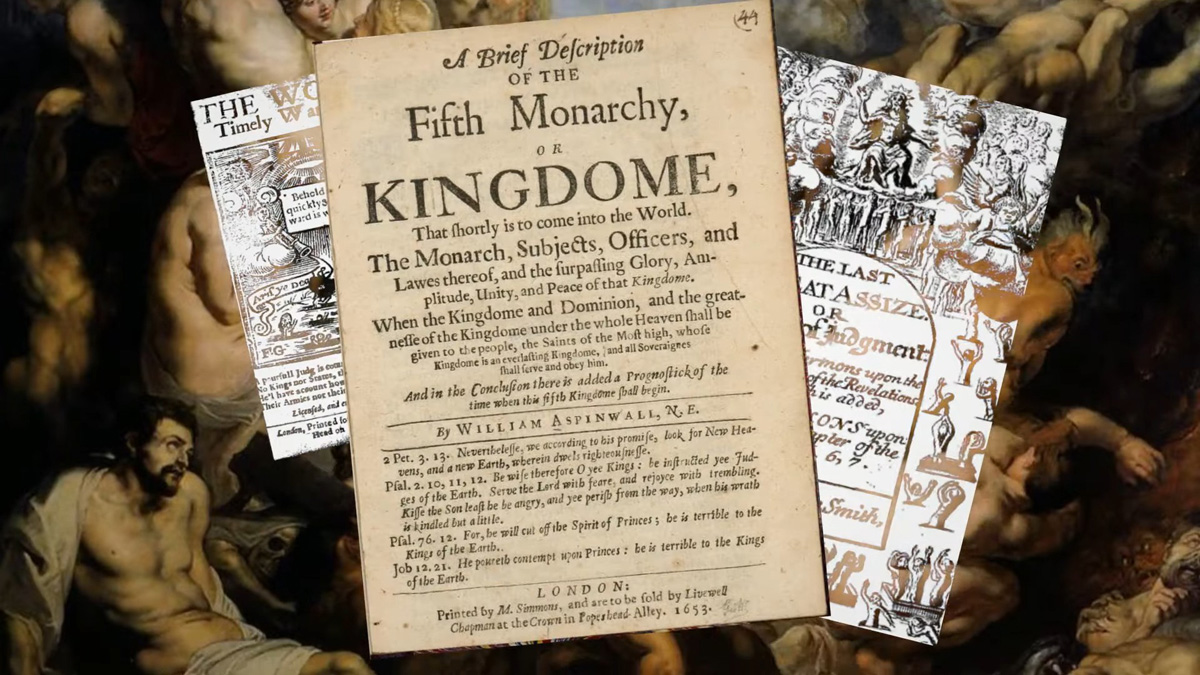 THE WO
Timely Wa
Behold
quickly
ward is w
F G
pourfull Judg is com
No Kings nor States, th
He'l have account how
Their Armies not the
Licensed, and
London, Printed fo
Head
(44)
A Brief Deſcription
OF THE
Fifth Monarchy,
OR
KINGDOME,
That ſhortly is to come into the World.
The Monarch, Subjects, Officers, and
Lawes thereof, and the ſurpaſſing Glory, Am-
plitude, Unity, and Peace of that Kingdome.
When the Kingdome and Dominion, and the great-
neſſe of the Kingdome under the whole Heaven ſhall be
given to the people, the Saints of the Moſt high, whoſe
Kingdome is an everlaſting Kingdome, and all Soveraignes
ſhall ſerve and obey him.
And in the Concluſion there is added a Prognoſtick of the
time when this fifth Kingdome ſhall begin.
By WILLIAM ASPINWALL, N.E.
2 Pet. 3. 13. Nevertheleſſe, we according to his promiſe, look for New Hea-
vens, and a new Earth, wherein dwels righteouſneſſe.
Pſal. 2. 10, 11, 12. Be wiſe therefore O yee Kings: be inſtructed yee Jud-
ges of the Earth. Serve the Lord with feare, and rejoyce with trembling.
Kiſſe the Son leaſt he be angry, and yee periſh from the way, when his wrath
is kindled but a little.
Pſal. 76. 12. For, he will cut off the Spirit of Princes; he is terrible to the
Kings of the Earth.
Job 12. 21. He poureth contempt upon Princes: he is terrible to the Kings
of the Earth.
LONDON:
Printed by M. Simmons, and are to be ſold by Livewell
Chapman at the Crown in Popeshead-Alley. 1653.
THE LAST
EAT ASSIZE
OR
of Judgment:
rmons upon the
of the Revelations
h is added,
ONS upon
pter of the
6, 7.
Smith,